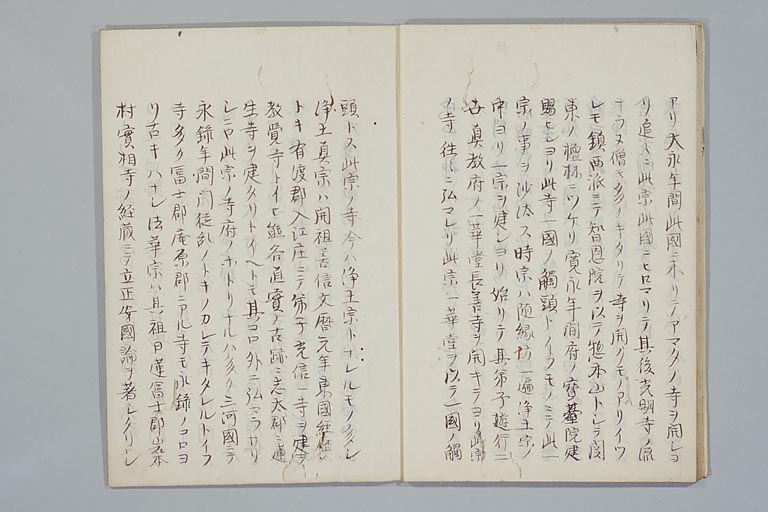 アリ大永年間此國ニ來リテアマタノ寺ヲ開シヨ
リ追々ニ此宗此國ニヒロマリテ其後光明寺ノ流
ヲ学ヌ僧モ多クキタリテ寺ヲ開クモアリイツ
レモ鎮西派ニテ智恩院ヲ以テ惣本山トシテ関
東ノ檀林ニツケリ寛永年間府ノ寶䑓院建
賜ヒシヨリ此寺一國ノ觸頭トイフモノニテ此一
宗ノ事ヲ沙汰ス時宗ハ随縁坊一遍浄土宗ノ
中ヨリ一宗ヲ建シヨリ始リテ其弟子遊行二
世真教府ノ一華堂長善寺ヲ開キテヨリ此宗
ノ寺往々ニ弘マレリ此宗一華堂ヲ以テ一國ノ觸
頭トス此宗ノ寺今ハ浄土宗トナレルモノ多シ
浄土真宗ハ開祖善信文暦元年東國経歴ノ
トキ有渡郡入江庄ニテ弟子充信一寺ヲ建テ
教覺寺トイヒ熊谷直實ノ古跡ニ志太郡ニ蓮
生寺ヲ建タリトイヘトモ其コロ外ニ弘マラサリ
シニヤ此宗ノ寺府ノホトリナルハ多ク三河國ニテ
永録年間門徒乱ノトキノカレテキタレルトイフ
寺多ク冨士郡庵原郡ニアル寺モ永録ノコロヨ
リ古キハナシ法華宗ハ其祖日蓮冨士郡岩本
村實相寺ノ経蔵ニテ立正安國論ヲ著シタリシ